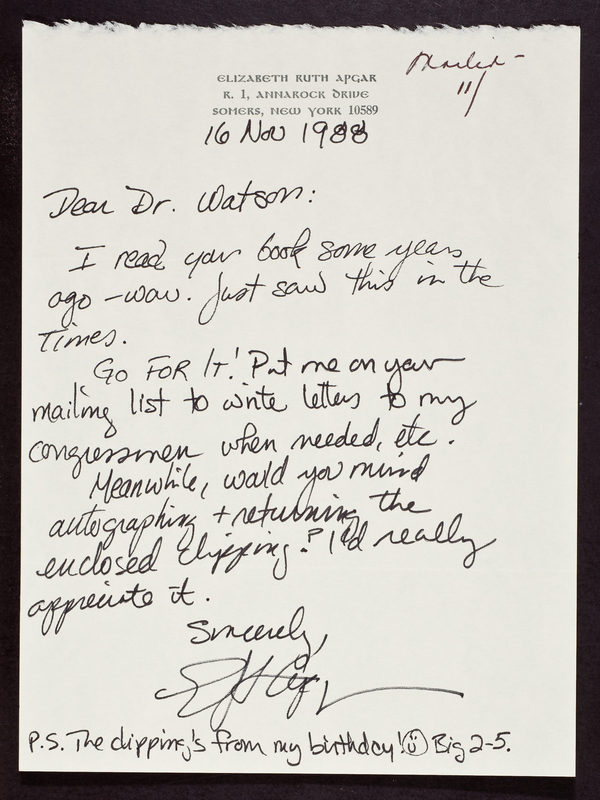 Mailed -
11/
ELIZABETH RUTH APGAR
R. 1, ANNAROCK DRIVE
SOMERS, NEW YORK 10589
16 Nov 1988
Dear Dr. Watson:
I read your book some years
ago - wow. Just saw this in the
Times.
GO FOR IT! Put me on your
mailing list to write letters to my
congressmen when needed, etc.
Meanwhile, would you mind
autographing + returning the
enclosed clipping? I'd really
appreciate it.
Sincerely,
P.S. The clipping's from my birthday! Big 2-5.